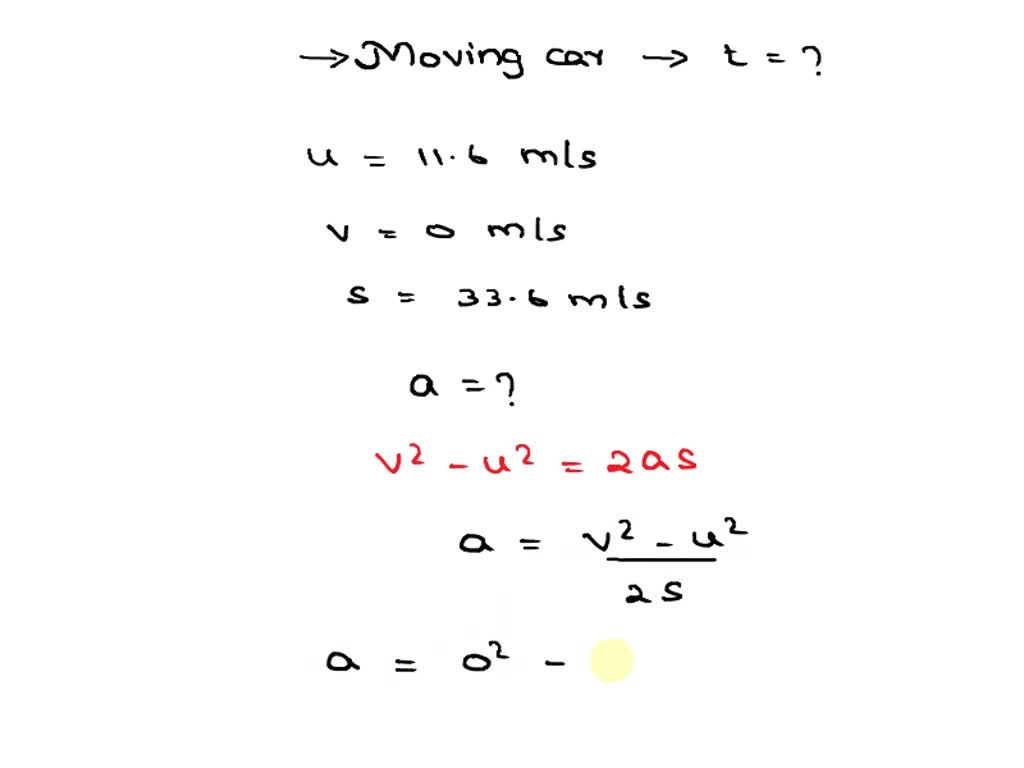 → Moving car → t = ?
u = 11.6 m/s
v = 0 m/s
s = 33.6 m/s
a = ?
v² - u² = 2as
a = v² - u²
2s
a = 0² -